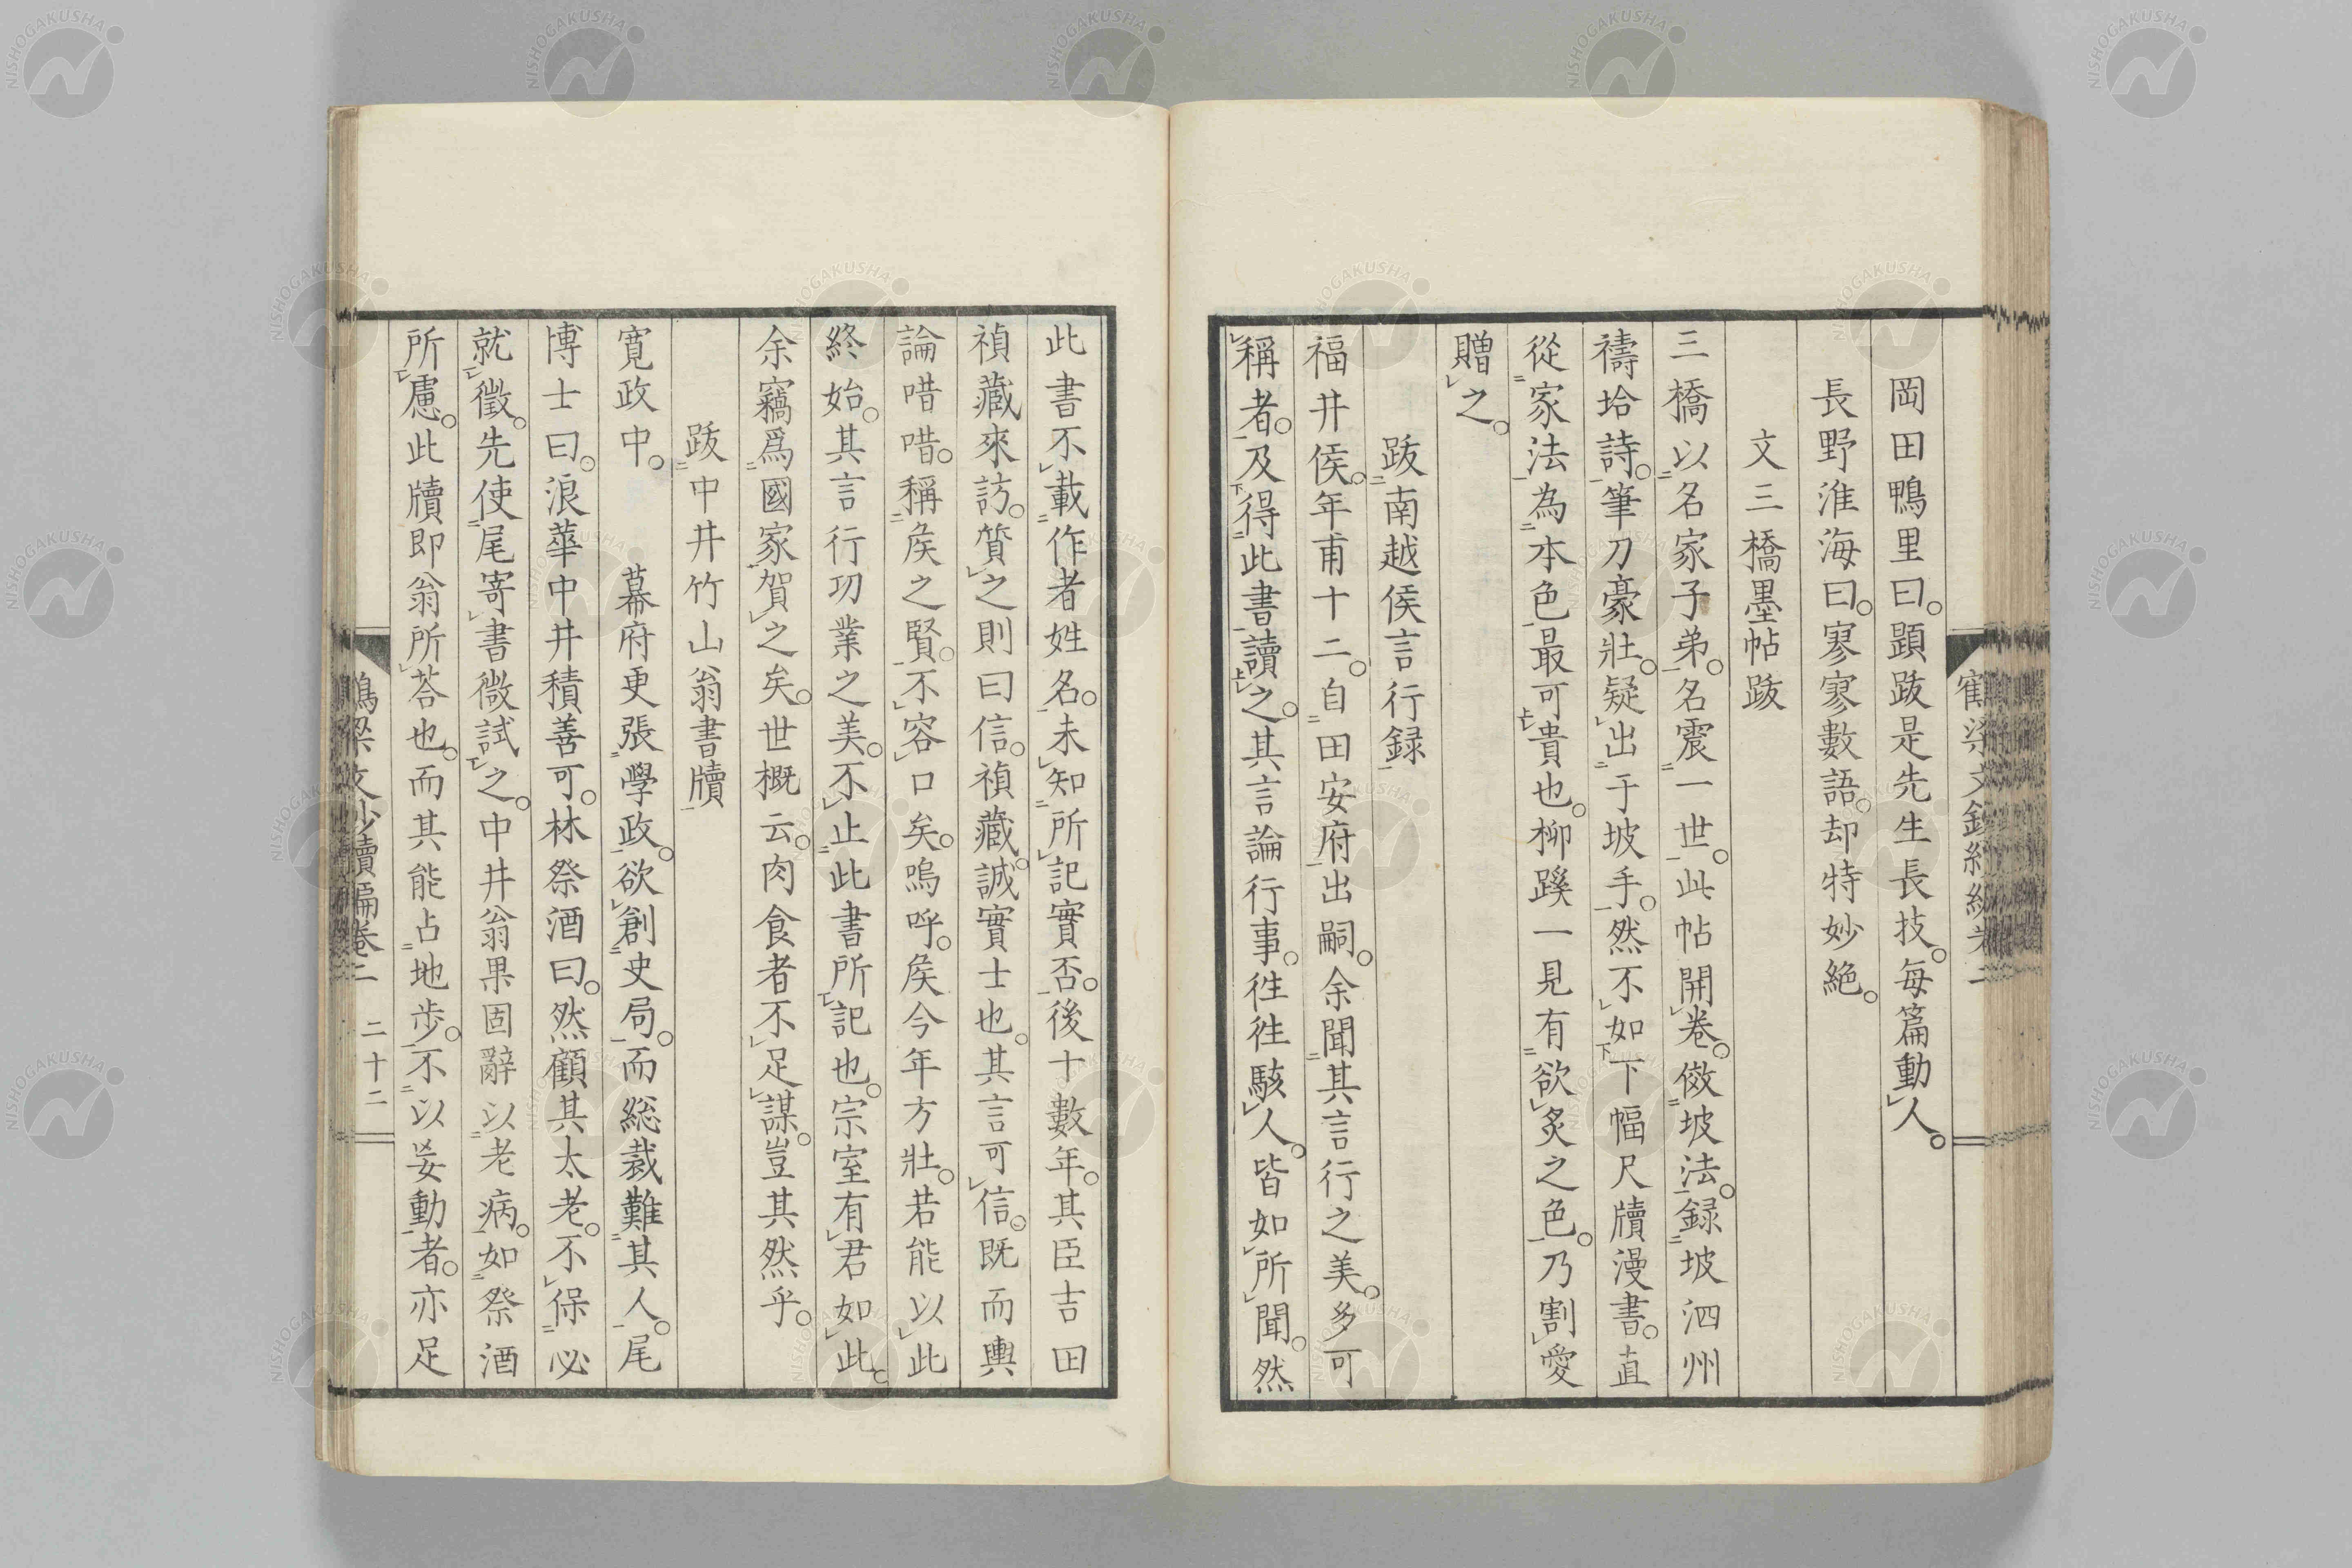 岡田鴨里曰。題跋是先生長技。每篇動人。
長野淮海曰。寥寥數語。却特妙絶。
文三橋墨帖跋
三橋以名家子弟。名震一世。此帖開卷。倣坡法。録坡泗州
禱㙮詩。筆刀豪壯。疑出于坡手。然不如下幅尺牘漫書。直
從家法為本色最可貴也。柳蹊一見有欲炙之色。乃割愛
贈之。
跋南越侯言行録
福井侯。年甫十二。自田安府出嗣。余聞其言行之美。多可
稱者。及得此書讀之。其言論行事。徃徃駭人。皆如所聞。然
此書不載作者姓名。未知所記實否。後十數年。其臣吉田
禎藏來訪。質之則曰信。禎藏誠實士也。其言可信。既而輿
論唶唶。稱矦之賢。不容口矣。嗚呼。矦今年方壯。若能以此
終始。其言行功業之美。不止此書所記也。宗室有君如此。
余竊爲國家賀之矣。世概云。肉食者不足謀。豈其然乎。
跋中井竹山翁書牘
寛政中。 幕府更張學政。欲創史局。而総裁難其人。尾
博士曰。浪華中井積善可。林祭酒曰。然顧其太老。不保必
就徵。先使尾寄書微試之。中井翁果固辭以老病。如祭酒
所慮。此牘即翁所荅也。而其能占地步。不以妄動者。亦足
鶴梁文鈔續編卷二 二十二
NISHOGAKUSHA